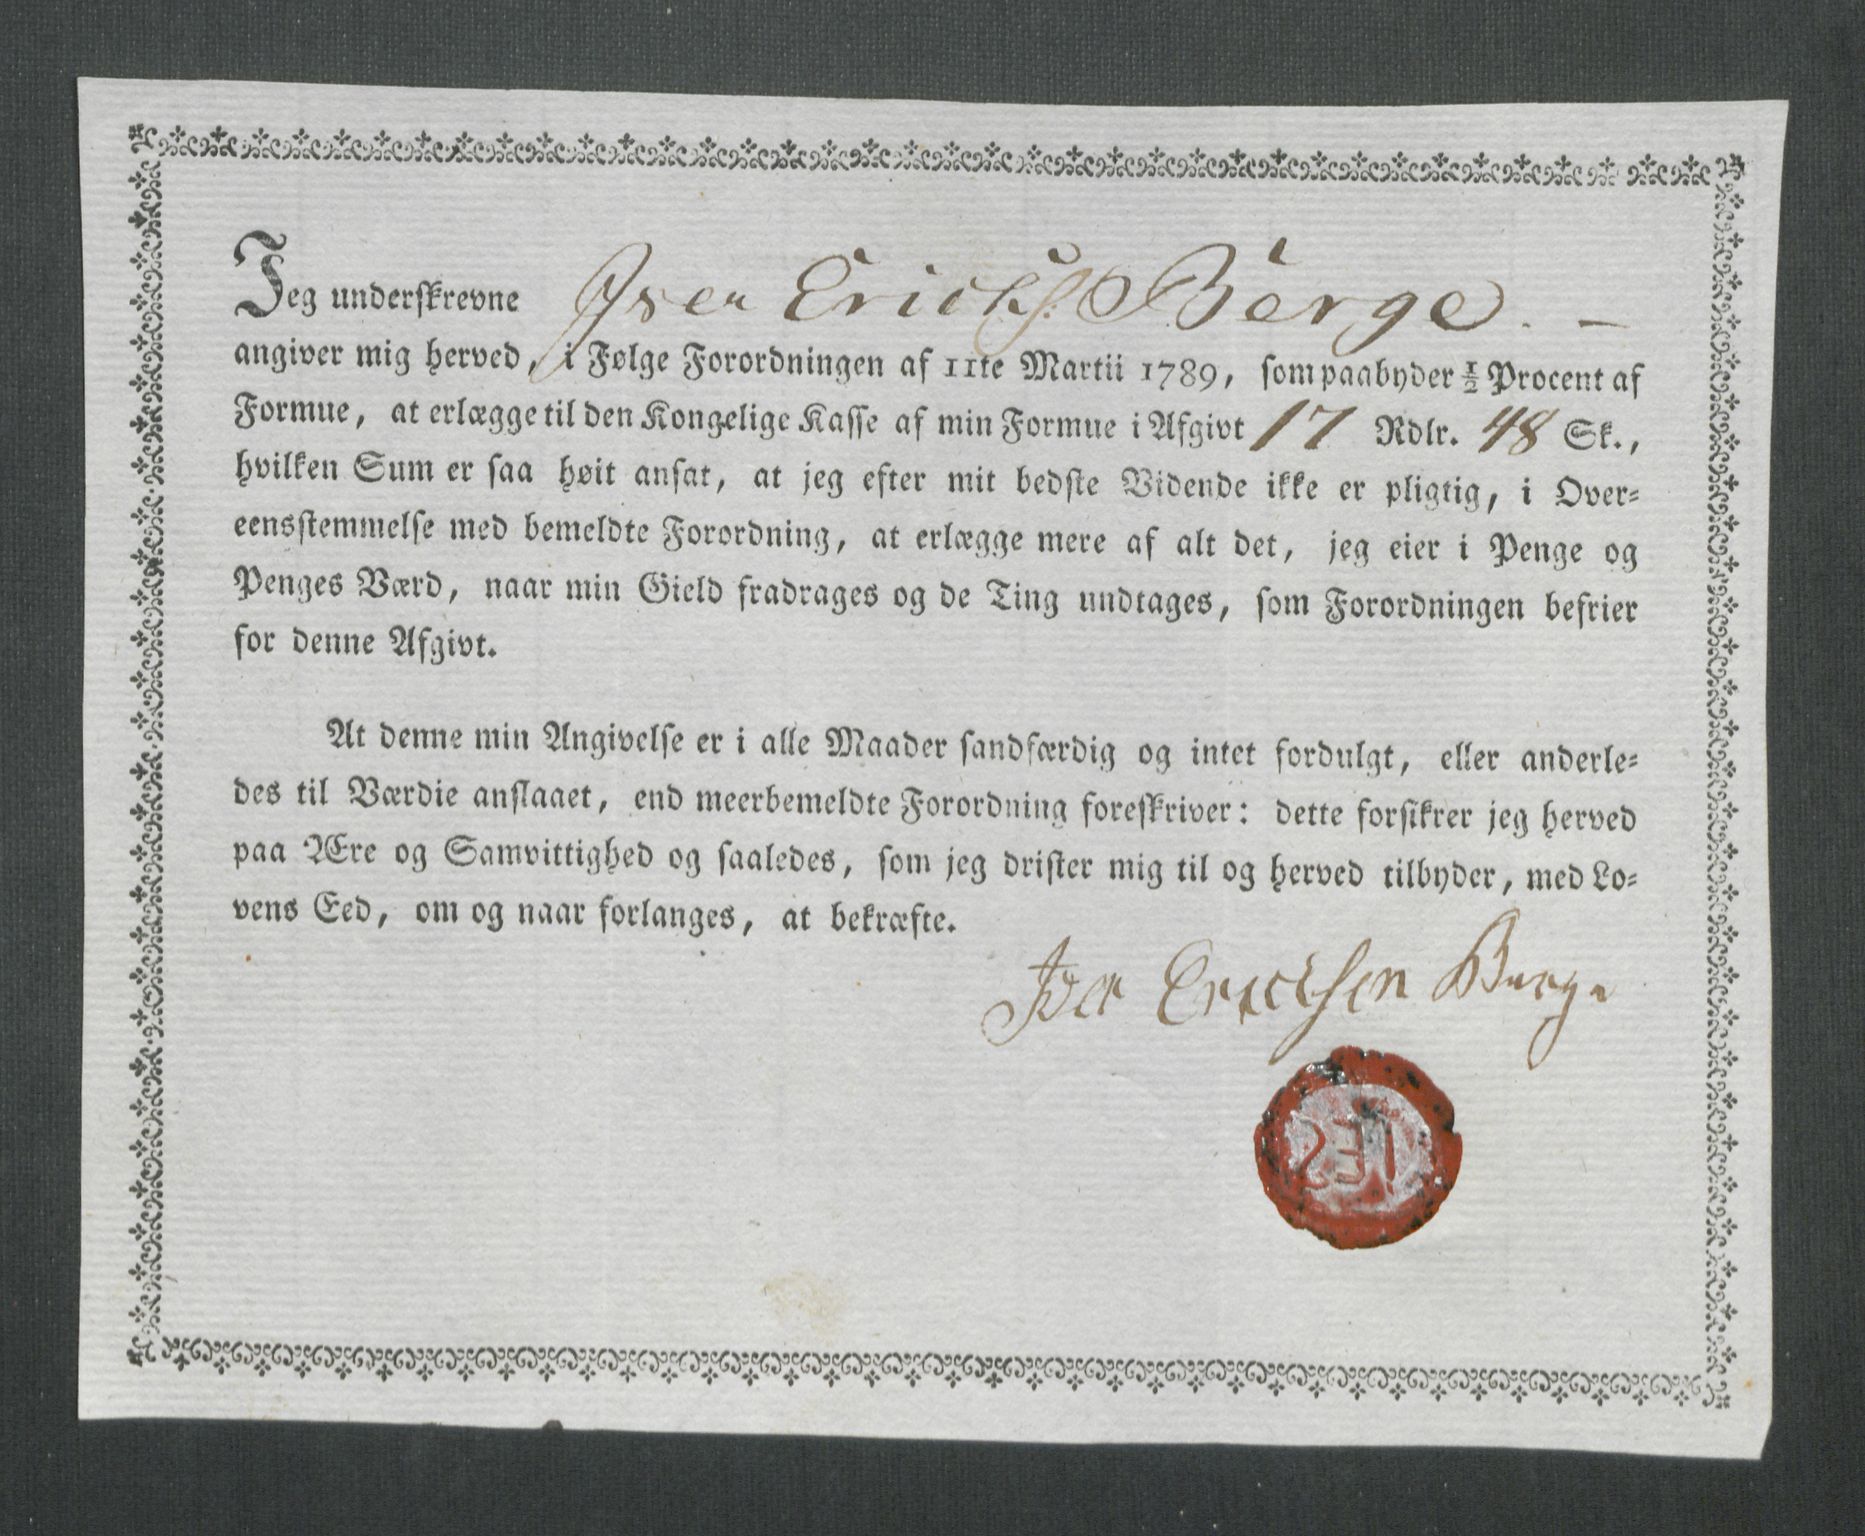 Jeg underskrevne Iver Ericks. Berge. –
angiver mig herved, i Følge Forordningen af 11te Martii 1789, som paabyder ½ Procent af
Formue, at erlægge til den Kongelige Kasse af min Formue i Afgivt 17 Rdlr. 48 Sk.,
hvilken Sum er saa høit ansat, at jeg efter mit bedste Vidende ikke er pligtig, i Over-
eensstemmelse med bemeldte Forordning, at erlægge mere af alt det, jeg eier i Penge og
Penges Værd, naar min Gield fradrages og de Ting undtages, som Forordningen befrier
for denne Afgivt.
At denne min Angivelse er i alle Maader sandfærdig og intet fordulgt, eller anderle-
des til Værdie anslaaet, end meerbemeldte Forordning foreskriver: dette forsikrer jeg herved
paa Ære og Samvittighed og saaledes, som jeg drister mig til og herved tilbyder, med Lo-
vens Eed, om og naar forlanges, at bekræfte.
Iver Erichsen Berge
IES